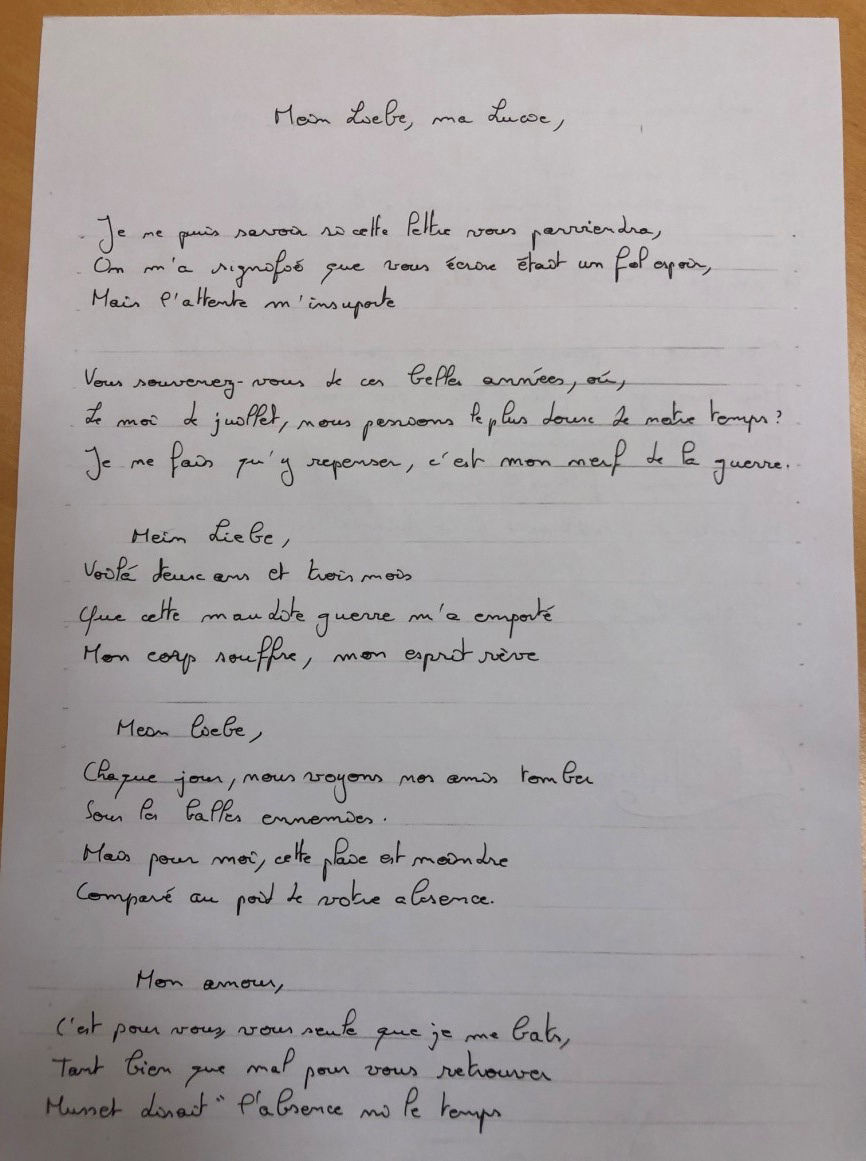 Mein Liebe, ma Lucie,
Je ne puis savoir si cette lettre vous parviendra,
On m'a signifié que vous écrire était un fol espoir,
Mais l'attente m'insuporte
Vous souvenez-vous de ces belles années, où,
Le moi de juillet, nous passions le plus doux de notre temps?
Je ne fais qu'y repenser, c'est mon nerf de la guerre.
Mein Liebe,
Voilà deux ans et trois mois
Que cette maudite guerre m'a emporté
Mon corp souffre, mon esprit rêve
Mein liebe,
Chaque jour, nous voyons nos amis tomber
Sous les balles ennemies.
Mais pour moi, cette plaie est moindre
Comparé au poid de votre absence.
Mon amour,
C'est pour vous, vous seule que je me bats,
Tant bien que mal pour vous retrouver
Musset disait "l'absence ni le temps